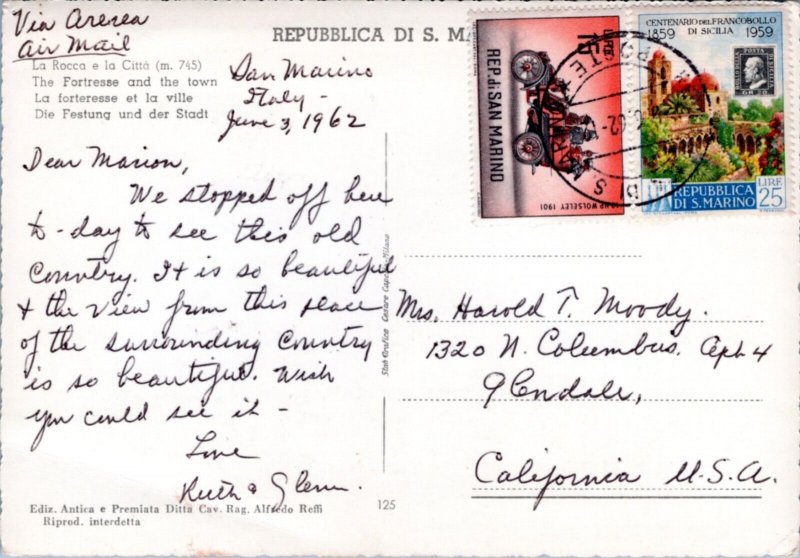 Via Aerea
Air Mail
REPUBBLICA DI S. MA
La Rocca e la Città (m. 745)
The Fortresse and the town
La forteresse et la ville
Die Festung und der Stadt
San Marino
Italy -
June 3, 1962
Dear Marion,
We stopped off here
to-day to see this old
Country. It is so beautiful
& the view from this place
of the surrounding Country
is so beautiful. Wish
you could see it -
Love
Ruth & Glenn.
Ediz. Antica e Premiata Ditta Cav. Rag. Alfredo Reffi
Riprod. interdetta
125
Stab. Grafico Cesare Capello Milano
LIRE
15
REP. di SAN MARINO
WOLSELEY 1901
CENTENARIO DEL FRANCOBOLLO
1859 DI SICILIA 1959
POSTA
GR. 20
REPUBBLICA
DI S. MARINO
LIRE
25
Mrs. Harold T. Moody.
1320 N. Columbus. Apt 4
Glendale,
California U.S.A.